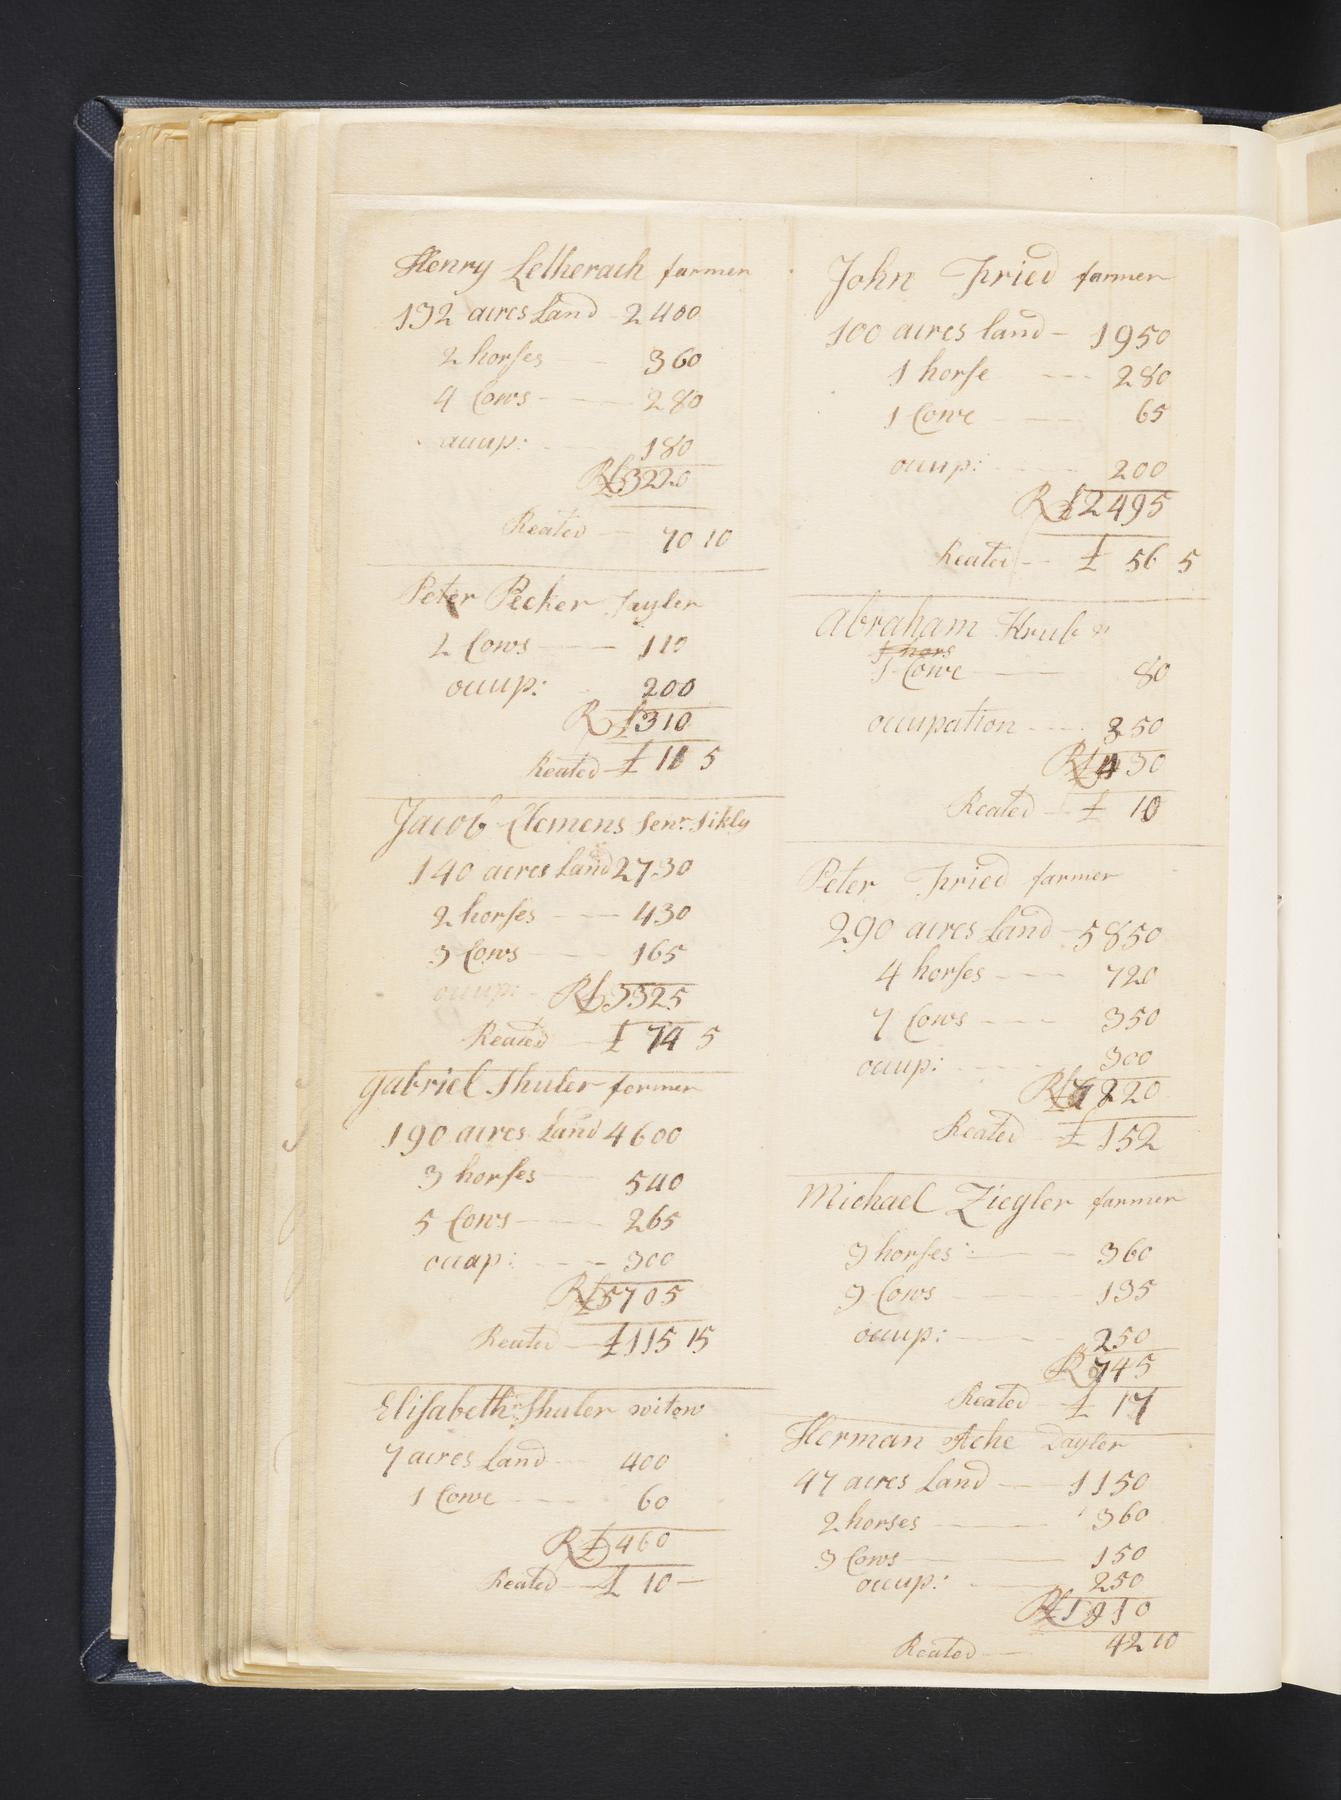 Henry Letherach farmer
132 acres Land 2400
2 horses 360
4 Cows 280
occup: 180
R £3220
Reated 70 10
Peter Pecker Tayler
2 Cows 110
occup: 200
R £310
Reated £ 11 5
Jacob Clemens Senr. Sikly
140 acres Land 2730
2 horses 430
3 Cows 165
occup:
R £3325
Reated £ 74 5
gabriel Shuler farmer
190 acres Land 4600
3 horses 540
5 Cows 265
occup: 300
R £5705
Reated £115 15
Elisabeth Shuler witow
7 acres Land 400
1 Cowe 60
R £460
Reated £ 10
John Fried farmer
100 acres land 1950
1 horse 280
1 Cowe 65
occup: 200
R £2495
Reated £ 56 5
Abraham
1 hors
1 Cowe 80
occupation 350
R £430
Reated £ 10
Peter Fried farmer
290 acres Land 5850
4 horses 720
7 Cows 350
occup: 300
R £7220
Reated £ 152
Michael Ziegler farmer
3 horses 360
3 Cows 135
occup: 250
R 745
Reated £ 17
Herman Ache Dayler
47 acres Land 1150
2 horses 360
3 Cows 150
occup: 250
R £1910
Reated 42 10